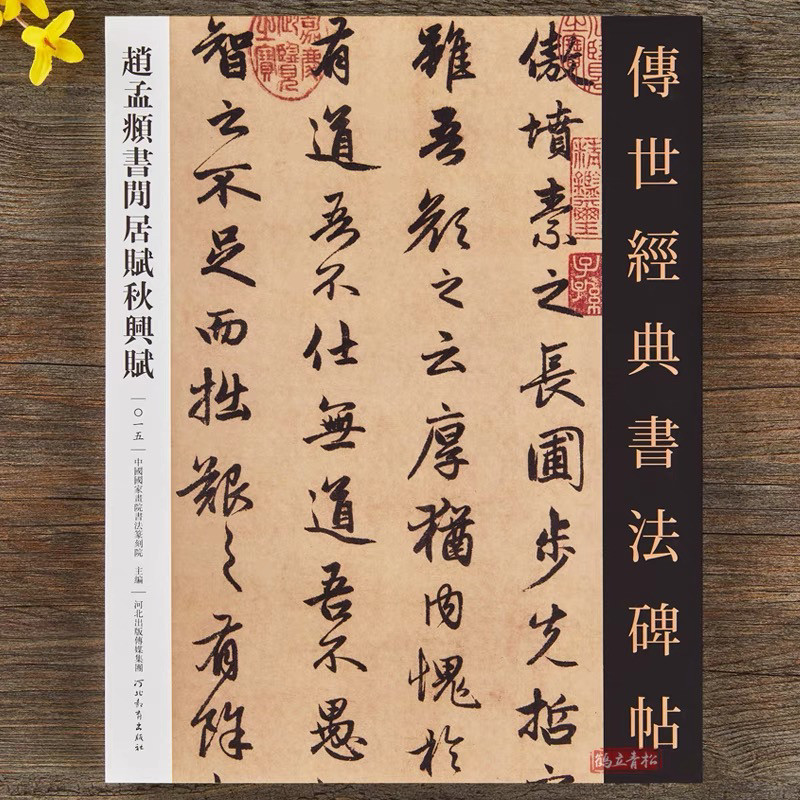 傳世經典書法碑帖
傲墳素之長圃步先哲
雖吾顏之云厚猶內愧於
有道吾不仕無道吾不愚
智之不足而拙艱之有餘
精鑑璽
子孫
趙孟頫書閒居賦秋興賦
〇一五
中國國家畫院書法篆刻院 主編
河北出版傳媒集團
河北教育出版社
鶴立青松